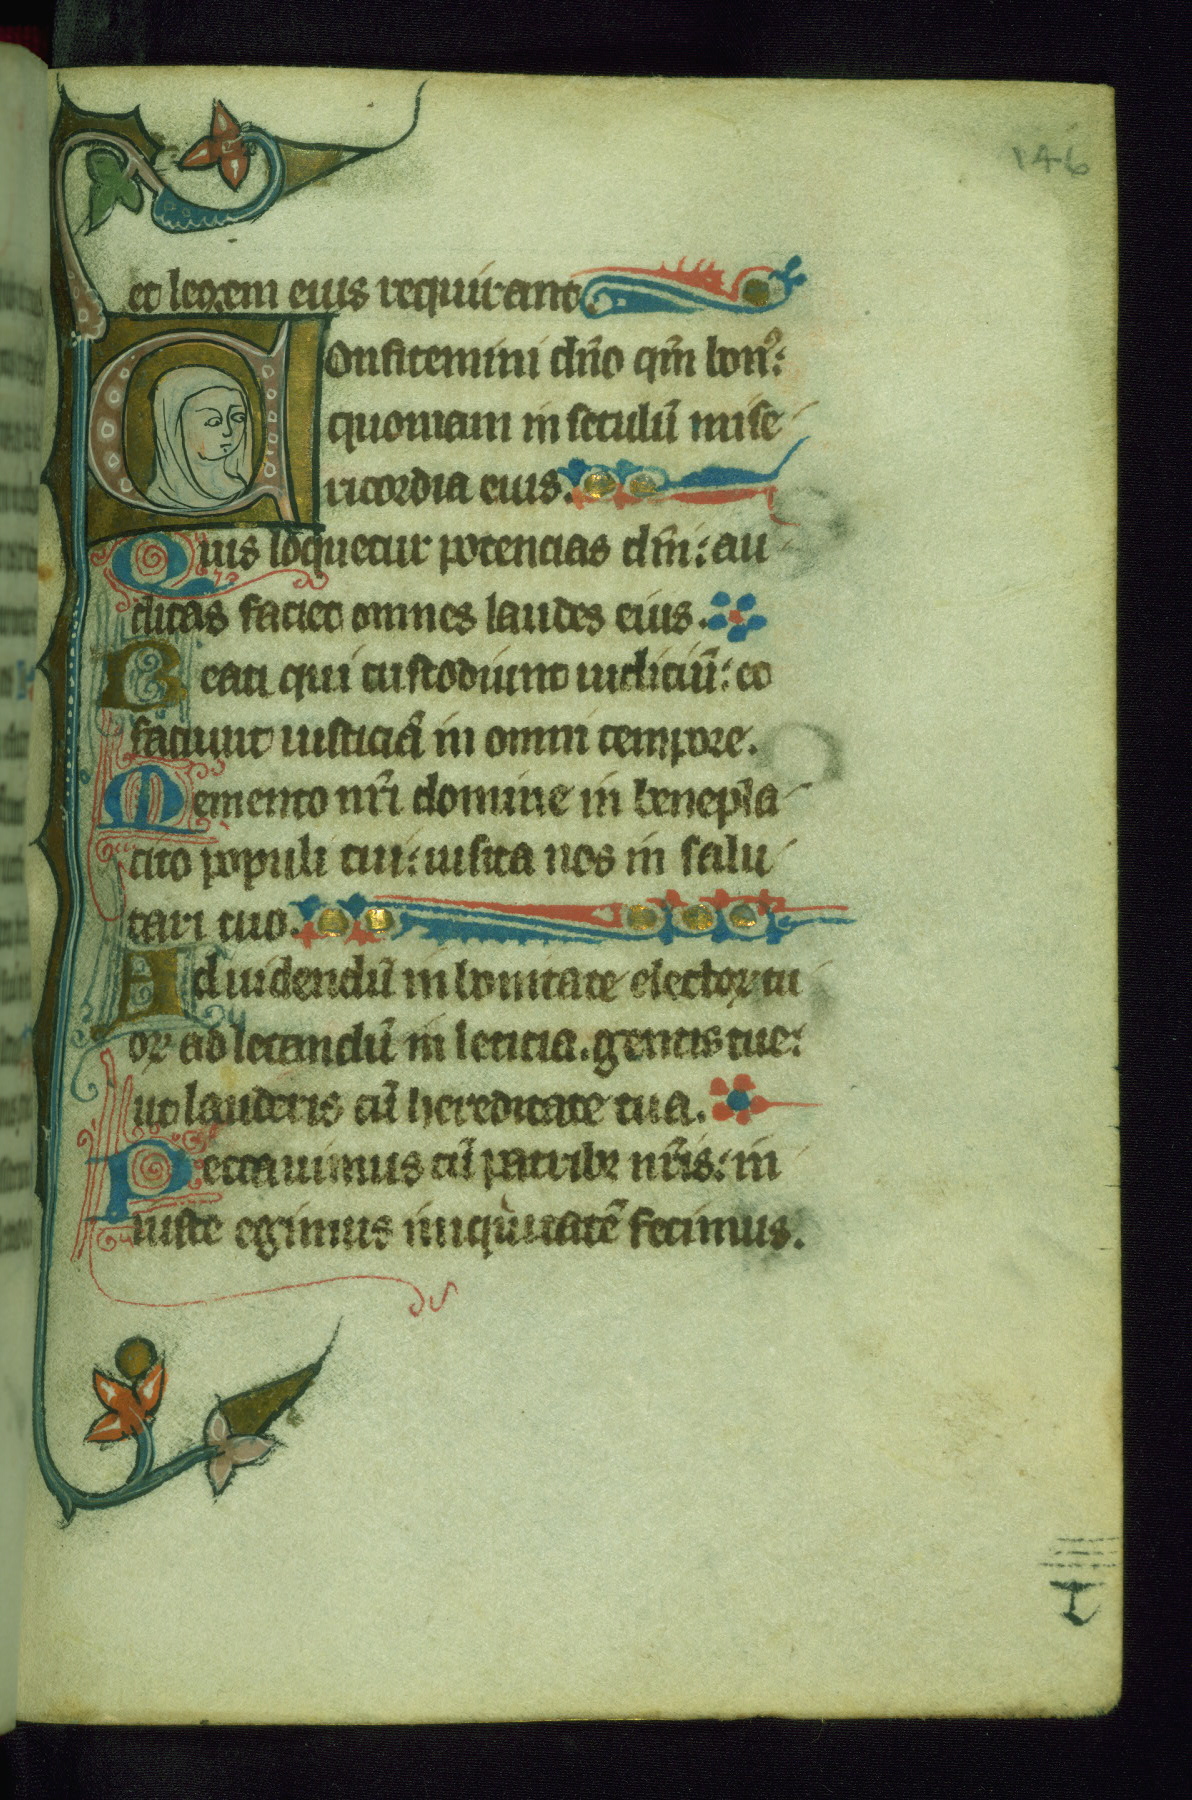 146
et legem eius requirant
Confitemini dño qm̃ bonꝰ:
quoniam in seculũ mise
ricordia eius.
Quis loquetur potencias dñi: au
ditas faciet omnes laudes eius.
Beati qui custodiunt iudiciũ: et
faciunt iusticiã in omni tempore.
Memento nr̃i domine in benepla
cito populi tui: uisita nos in salu
tari tuo.
Ad uidendũ in bonitate electoꝝ tu
oꝝ ad letandũ in leticia. gentis tue:
ut lauderis cũ hereditate tua.
Peccauimus cũ patribꝫ nr̃is: in
iuste egimus iniquitatẽ fecimus.